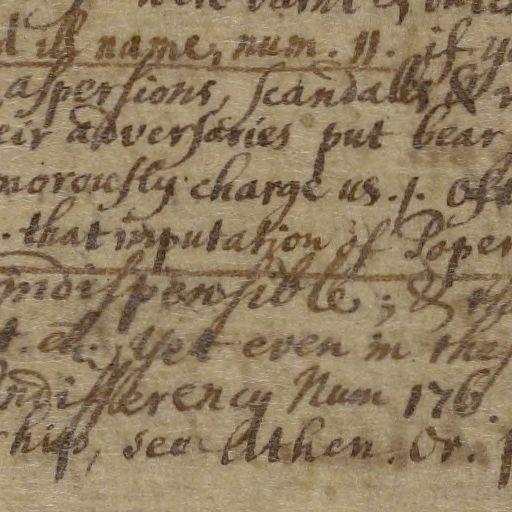 ill name, num. 11. if
aspersions, scandalls &
eir adversaries put bear
morously charge us. 1. Oft
. that imputation of Poper
indispensible; &
t. etc. yet even in thes
Indifferency Num 176.
hip, see Athen. Or.